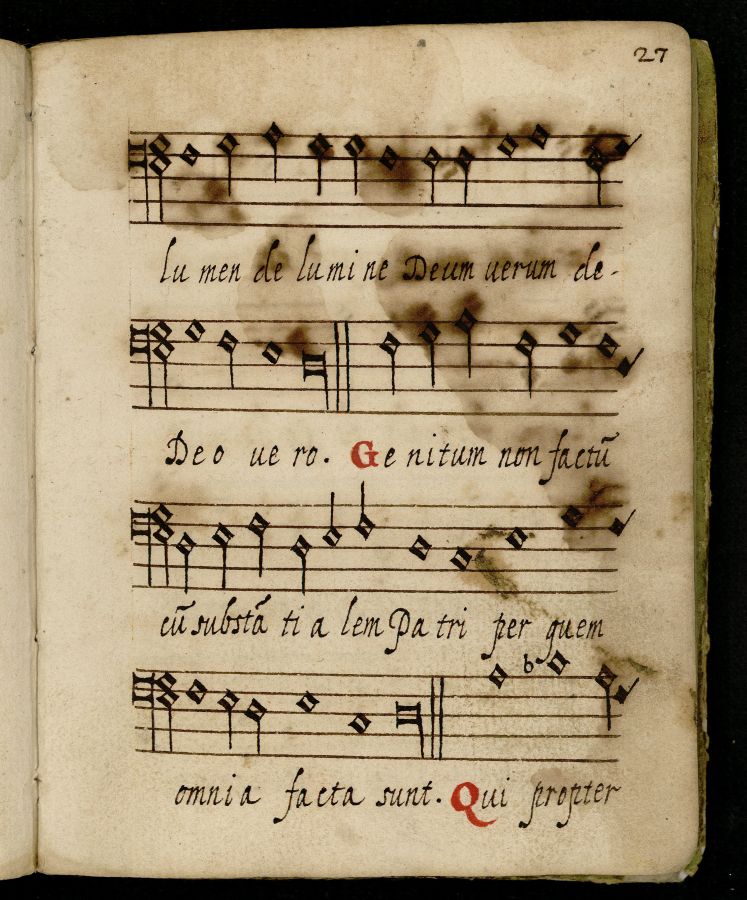 27
lu men de lu mi ne Deum uerum de-
Deo ue ro. Ge nitum non factū
cū substā ti a lem Pa tri per quem
b
omni a facta sunt. Qui propter